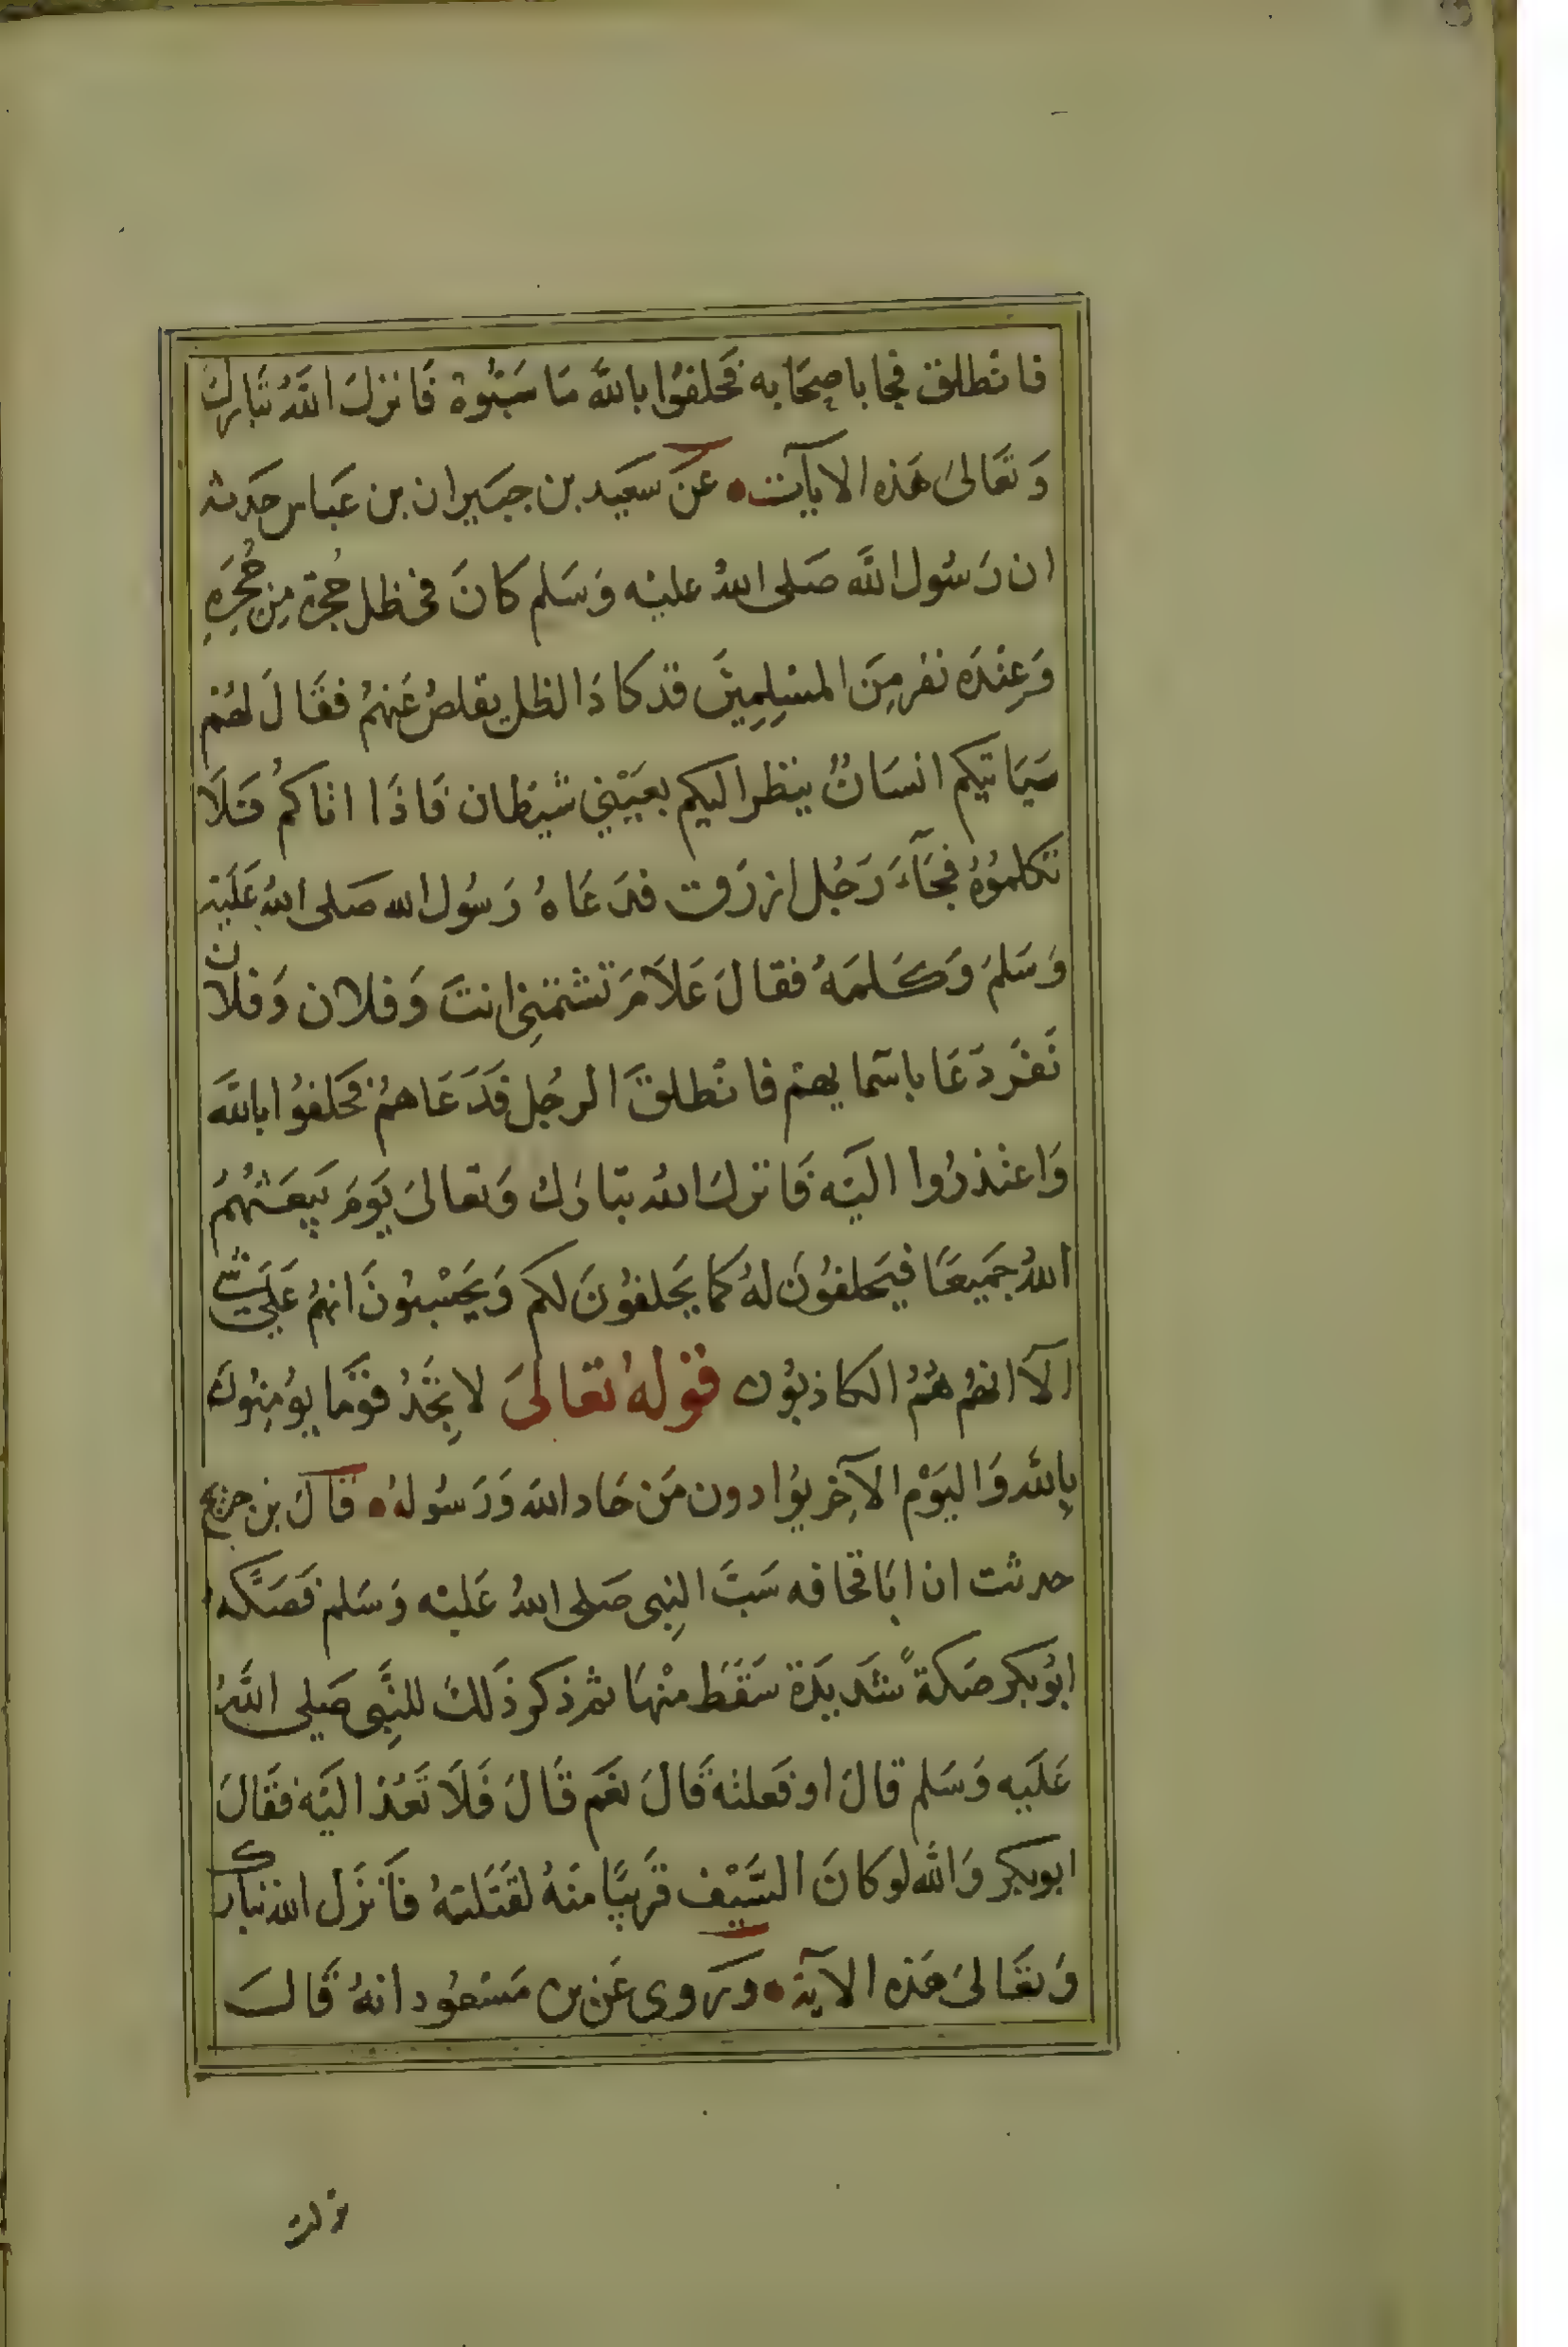 فانطلق فجا باصحَابه فحَلفوُا بالله مَا سَبّوُهْ فَانزلَ اللهُ تبَاركَ
وَتعَالىَ هَذه الايآت عَن سَعَيد بن جبَير ان بن عَباس حَدثه
ان رَسُول اللَّه صَلى اللهُ عليْه وَسَلم كانَ فى ظل حُجرة مِن حُجَرِهِ
وَعِنْدَه نفر مِنَ المسْلِمِينَ قد كادَ الظل يقلصُ عَنهمُ فقَالَ لهُم
سَيَاتيكم انسَانٌ ينظر اليكم بعيَنْي شيْطان فَاذَا اتاكمُ فَلَا
تكلموُهُ فجَآءَ رَجُل ازرَق فدَعَاهُ رَسُول الله صَلى اللهُ عَلَيْه
وَسَلمَ وَكَلمَهُ فقالَ عَلاَمَ تَشتمُنِى انتَ وَفلان وَفلان
نَفَر دَعَا باسمآيهم فانْطلقَ الرجُل فَدَعَاهمُ فحَلفوُا باللهَ
وَاعْتذرُوا اليَه فَانزلَ اللهُ تبَارَك وَتعالىَ يَوَمَ يَبعَثهُمُ
اللهُ جَميعًا فيَحلفوُنَ لهُ كما يَحلفوُنَ لكم وَيَحسْبوُنَ انهمُ عَلىَ شَيْ
الآ انهُم هُمُ الكاذبوُن قوْلهُ تعَالىَ لا تجِدُ قوْمًا يوُمِنوُنَ
بِالله وَاليَوْم الآخِر يوُادون مَن حَاد اللهَ وَرَسُولهُ قالَ بن جريج
حدثت ان ابَا قحافه سَبَّ النِبى صَلى اللهُ عَليْه وَسَلم فَصَكه
ابوُبكر صَكةً شَديدَة سَقَطَ منْهَا ثم ذكر ذَلكَ للنِّبى صَلى اللَّهُ
عَلَيه وَسَلم قالَ او فعلتهُ قَالَ نعَم قَالَ فَلَا تَعُدْ اليَه فقَالَ
ابوبكر وَالله لوكانَ السَّيْف قَريبًا منَهُ لقَتَلتهُ فَانزَل الله تبارك
وَتعَالىَ هَذه الآية وَروى عَن بن مَسْعوُد انهُ قَالَ
نزلت